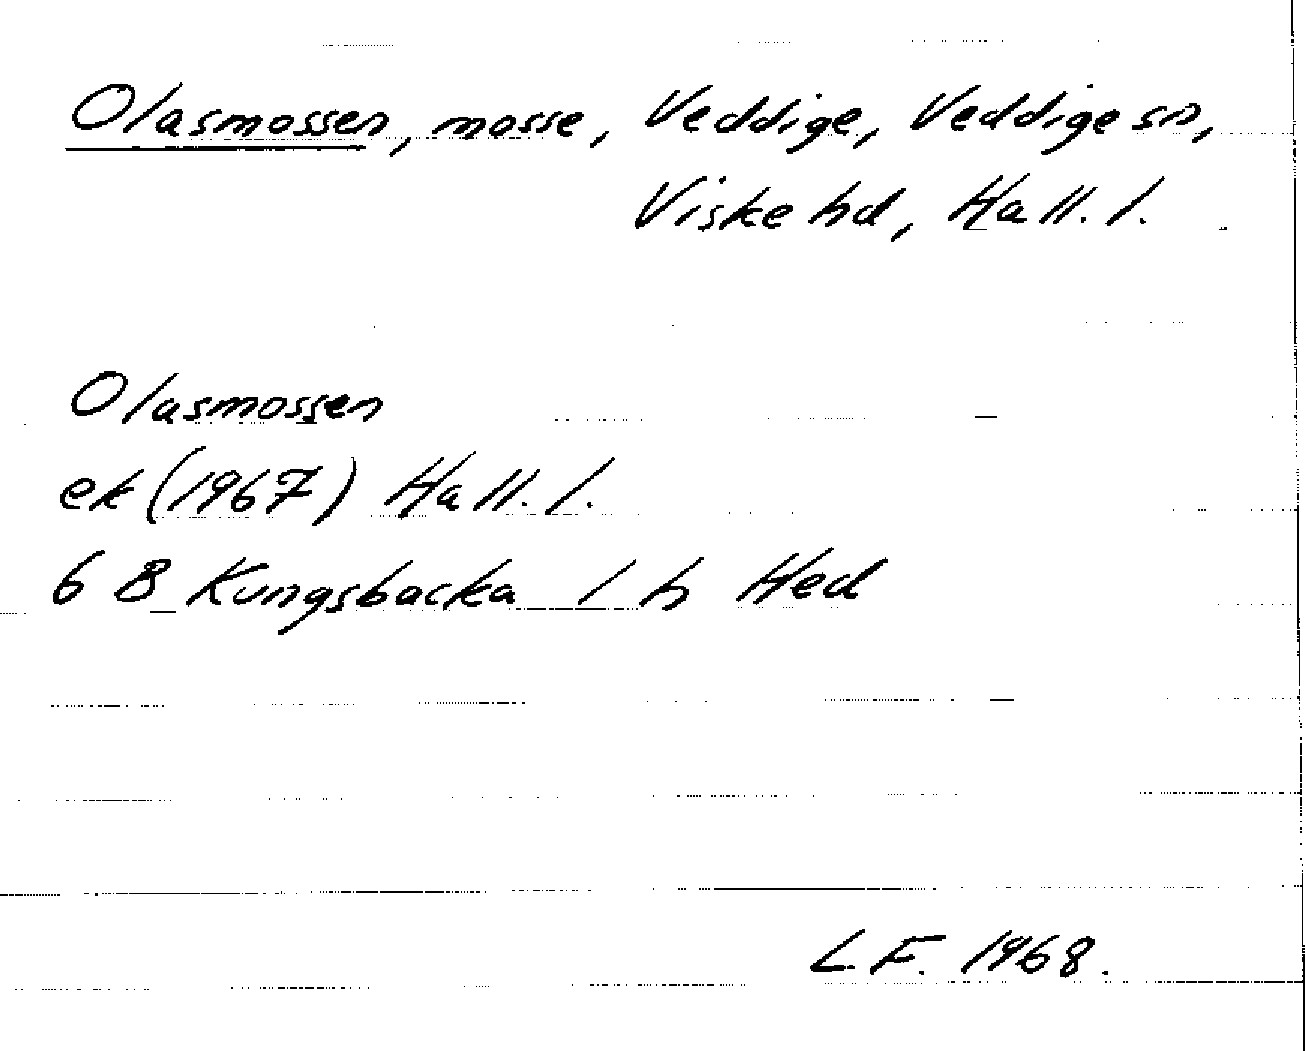 Olasmossen, mosse, Veddige, Veddige sn,
Viske hd, Hall. l.
Olasmossen
ek (1967) Hall. l.
6 B Kungsbacka 1 h Hed
L. F. 1968.